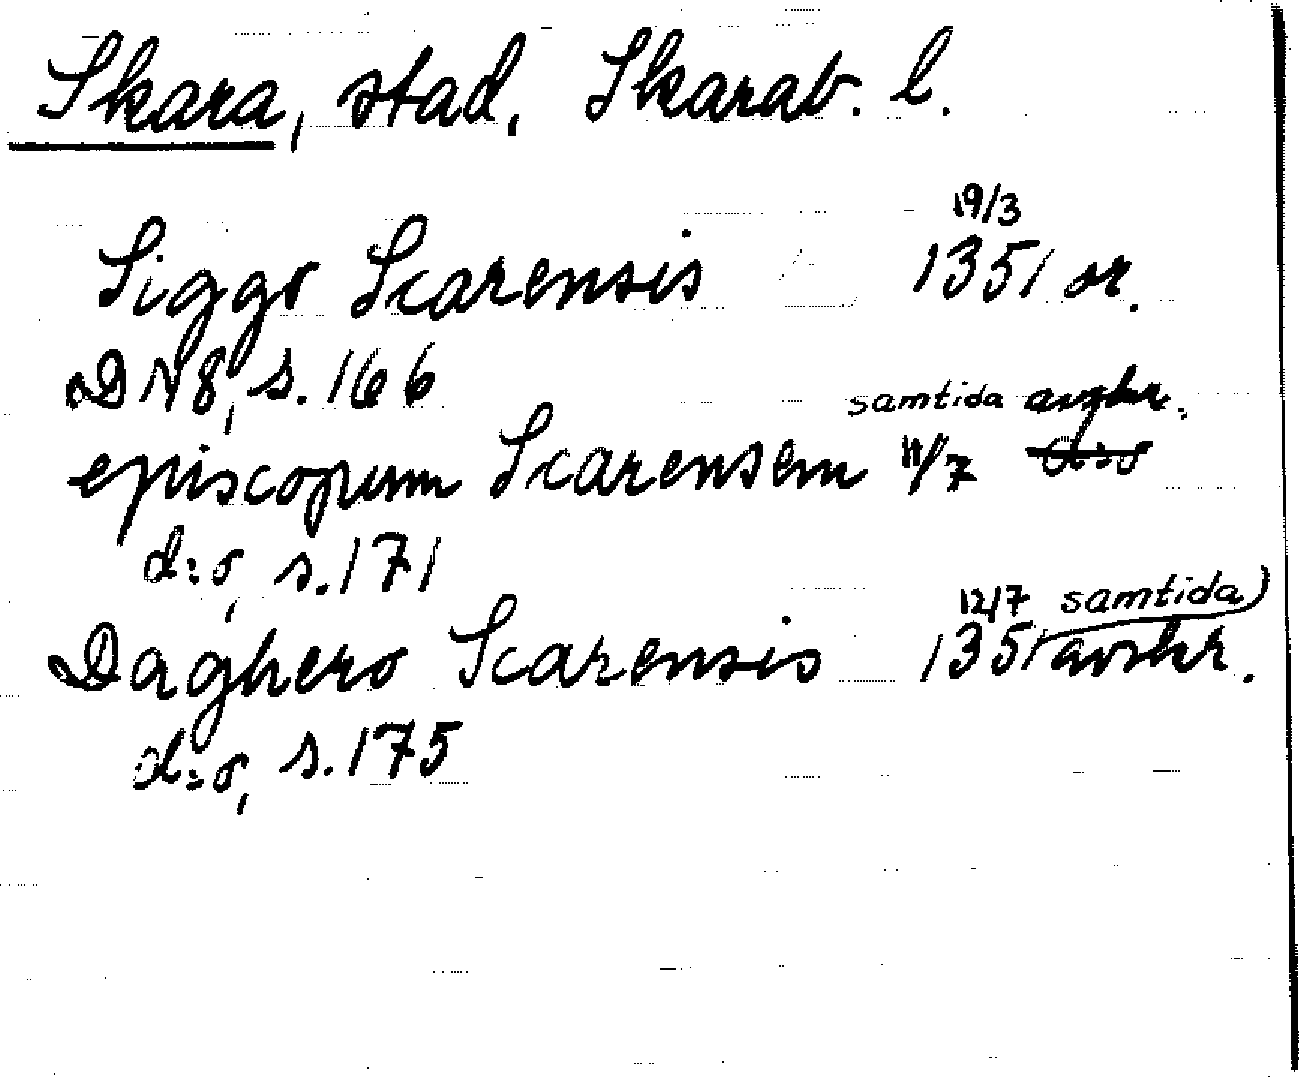 Skara, stad. Skarab. l.
Siggo Scarensis 19/3 1351 or.
DN 8, s. 166
episcopum Scarensem 11/7 samtida avskr.
d:o, s. 171
Daghero Scarensis 12/7 1351 samtida avskr.
d:o, s. 175